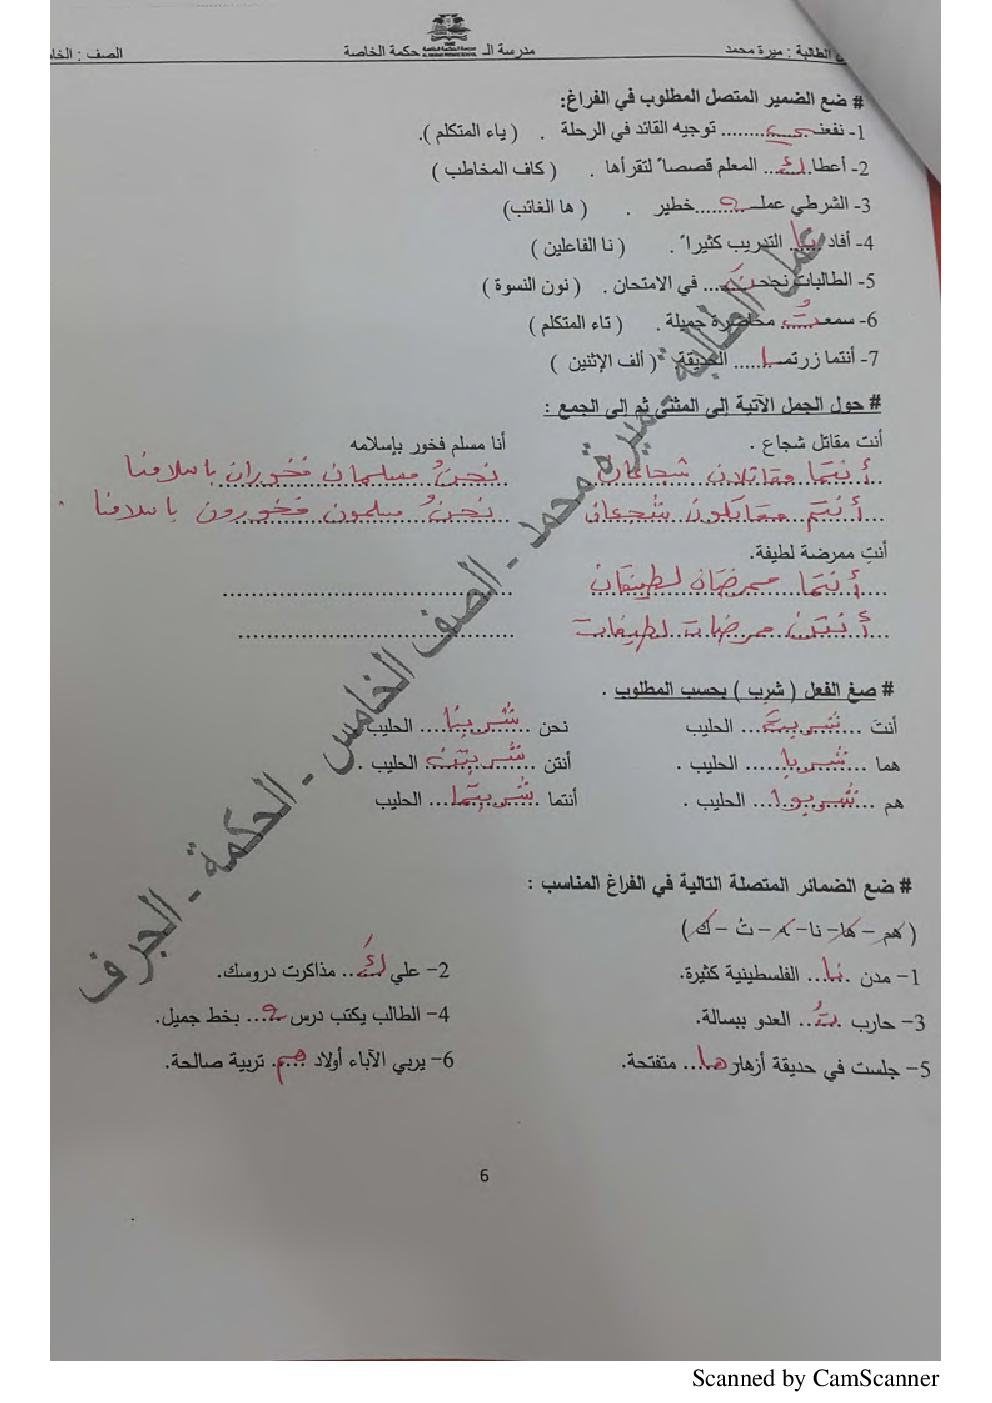 الطالبة : ميرة محمد
مدرسة الـ حكمة الخاصة
الصف : الخا
# ضع الضمير المتصل المطلوب في الفراغ:
1- نفعنـي........ توجيه القائد في الرحلة . ( ياء المتكلم ).
2- أعطا.كَ... المعلم قصصاً لتقرأها . ( كاف المخاطب )
3- الشرطي عملـ..ـه.....خطير . ( ها الغائب)
4- أفاد نا... التدريب كثيراً . ( نا الفاعلين )
5- الطالبات نجحـنَ.... في الامتحان . ( نون النسوة )
6- سمعـتُ..... محاضرة جميلة . ( تاء المتكلم )
7- أنتما زرتمـا...... الحديقة. ( ألف الإثنين )
# حول الجمل الآتية إلى المثنى ثم إلى الجمع :
أنت مقاتل شجاع .
أنا مسلم فخور بإسلامه
أنتما مقاتلان شجاعان
نحنُ مسلمان فخوران باسلامنا
أنتم مقاتلون شجعان
نحنُ مسلمون فخورون باسلامنا .
أنتِ ممرضة لطيفة.
أنتما ممرضتان لطيفتان
أنتن ممرضات لطيفات
# صغ الفعل ( شرب ) بحسب المطلوب .
أنتَ ....شربتَ.... الحليب
نحن ....شربنا.... الحليب
هما ....شربا.... الحليب .
أنتن ....شربتن.... الحليب .
هم ....شربوا.... الحليب .
أنتما ....شربتما.... الحليب
# ضع الضمائر المتصلة التالية في الفراغ المناسب :
( هم – ها – نا – ـه – تُ – ك )
1- مدن .نا... الفلسطينية كثيرة.
2- علي كَ... مذاكرت دروسك.
3- حارب تُ... العدو ببسالة.
4- الطالب يكتب درس ـه.... بخط جميل.
5- جلست في حديقة أزهار ها.... متفتحة.
6- يربي الآباء أولاد هم.... تربية صالحة.
عمل الطالبة : ميرة محمد - الصف الخامس - الحكمة - الجرف
6
Scanned by CamScanner